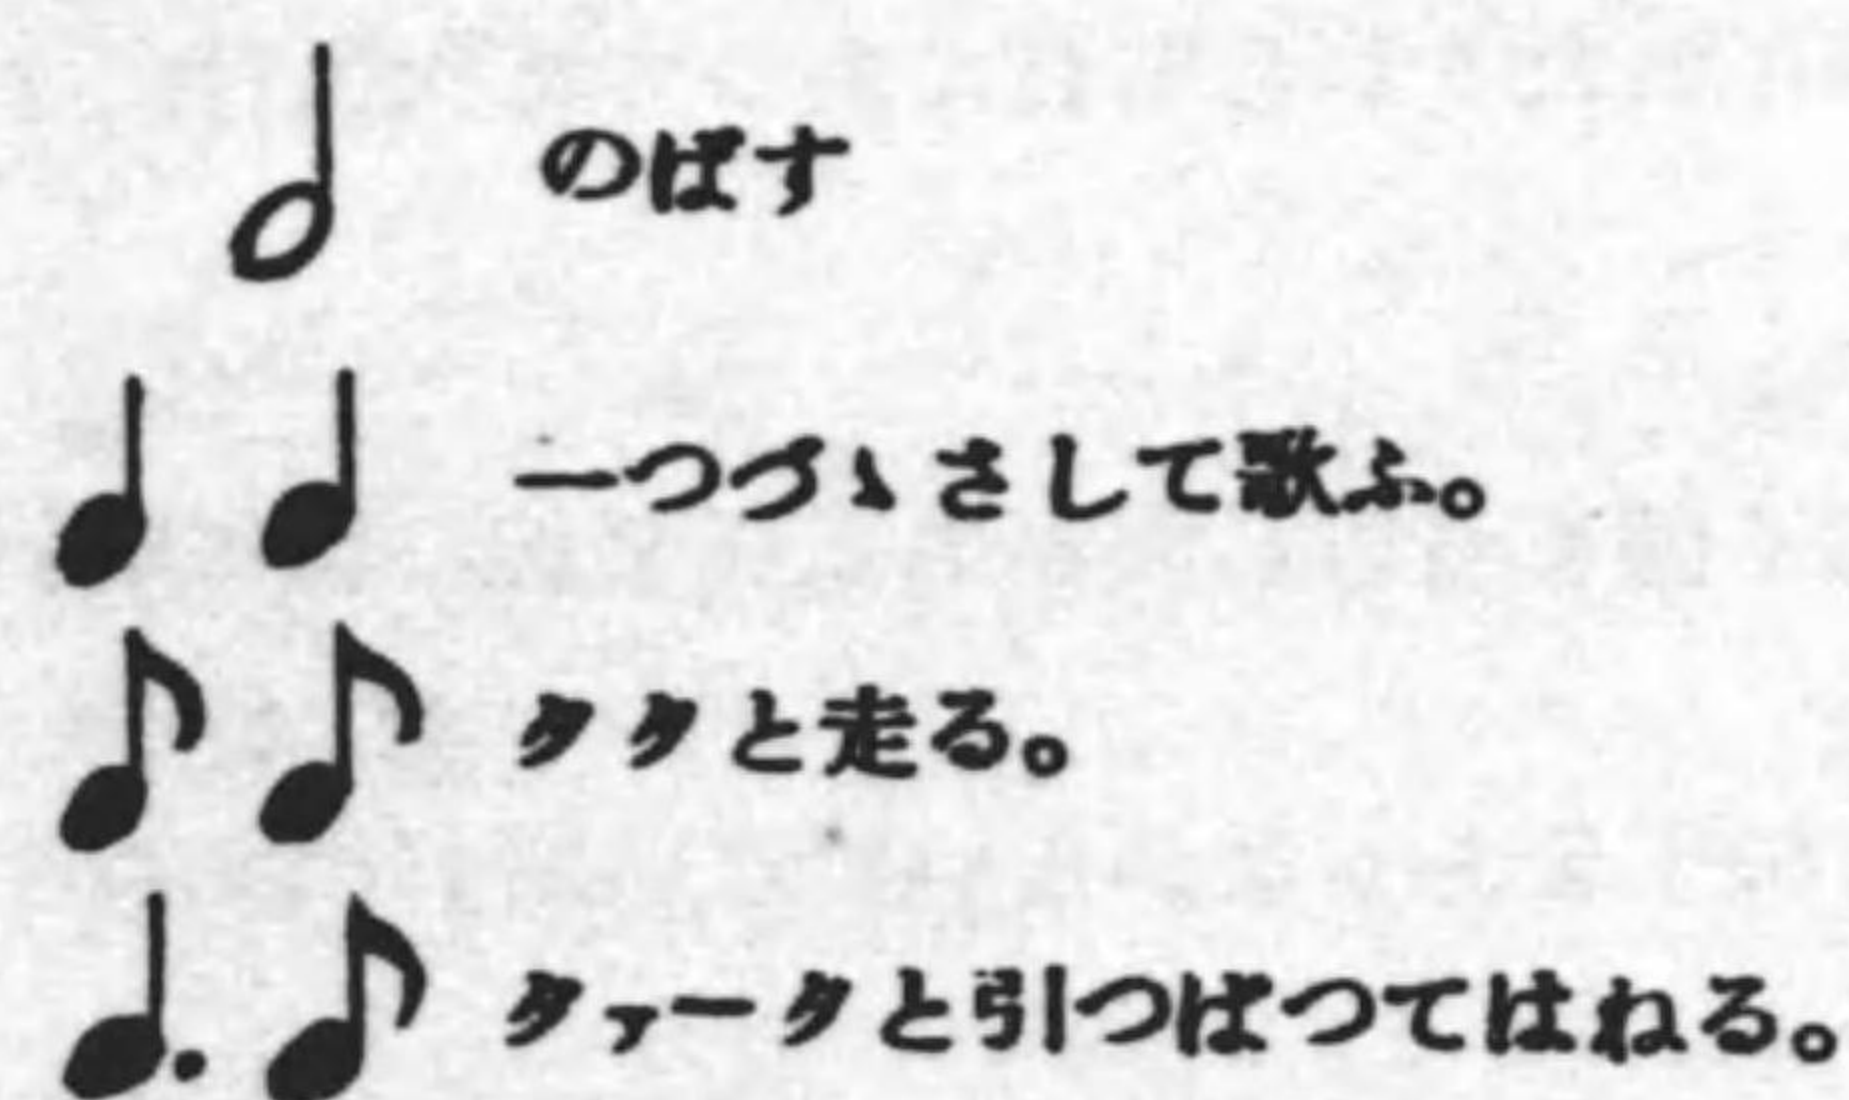 のばす
一つづゝさして歌ふ。
タタと走る。
タァータと引つぱつてはねる。